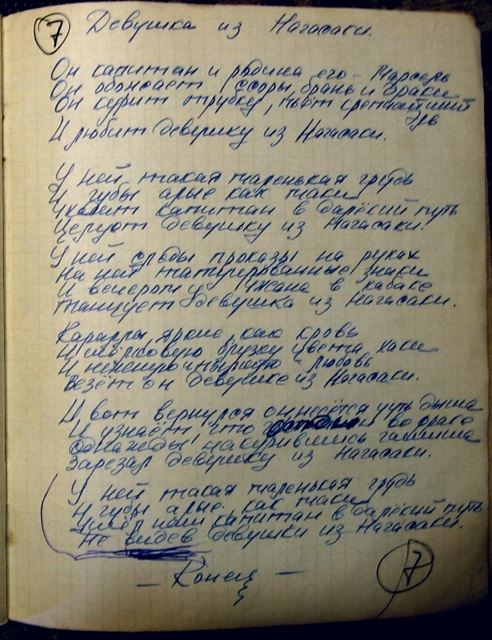 7
Девушка из Нагасаки.
Он капитан и родина его - Марсель
Он обожает ссоры, брань и драки
Он курит трубку, пьёт крепчайший
эль
И любит девушку из Нагасаки.
У ней такая маленькая грудь
И губы алые как маки
Уходит капитан в далёкий путь
Целует девушку из Нагасаки.
У ней следы проказы на руках
На ней татуированные знаки
И вечерами джана в кабаке
Танцует девушка из Нагасаки.
Каралы, яркие, как кровь
И шёлковую блузку цвета хаки
И любовь
Везёт он девушке из Нагасаки.
И вот вернулся он несётся чуть дыша
И узнаёт что во фраке
Однажды накурившись гашиша
Зарезал девушку из Нагасаки.
У ней такая маленькая грудь
И губы алые как маки
Ушёл наш капитан в далёкий путь
Не видев девушки из Нагасаки.
- Конец -
7